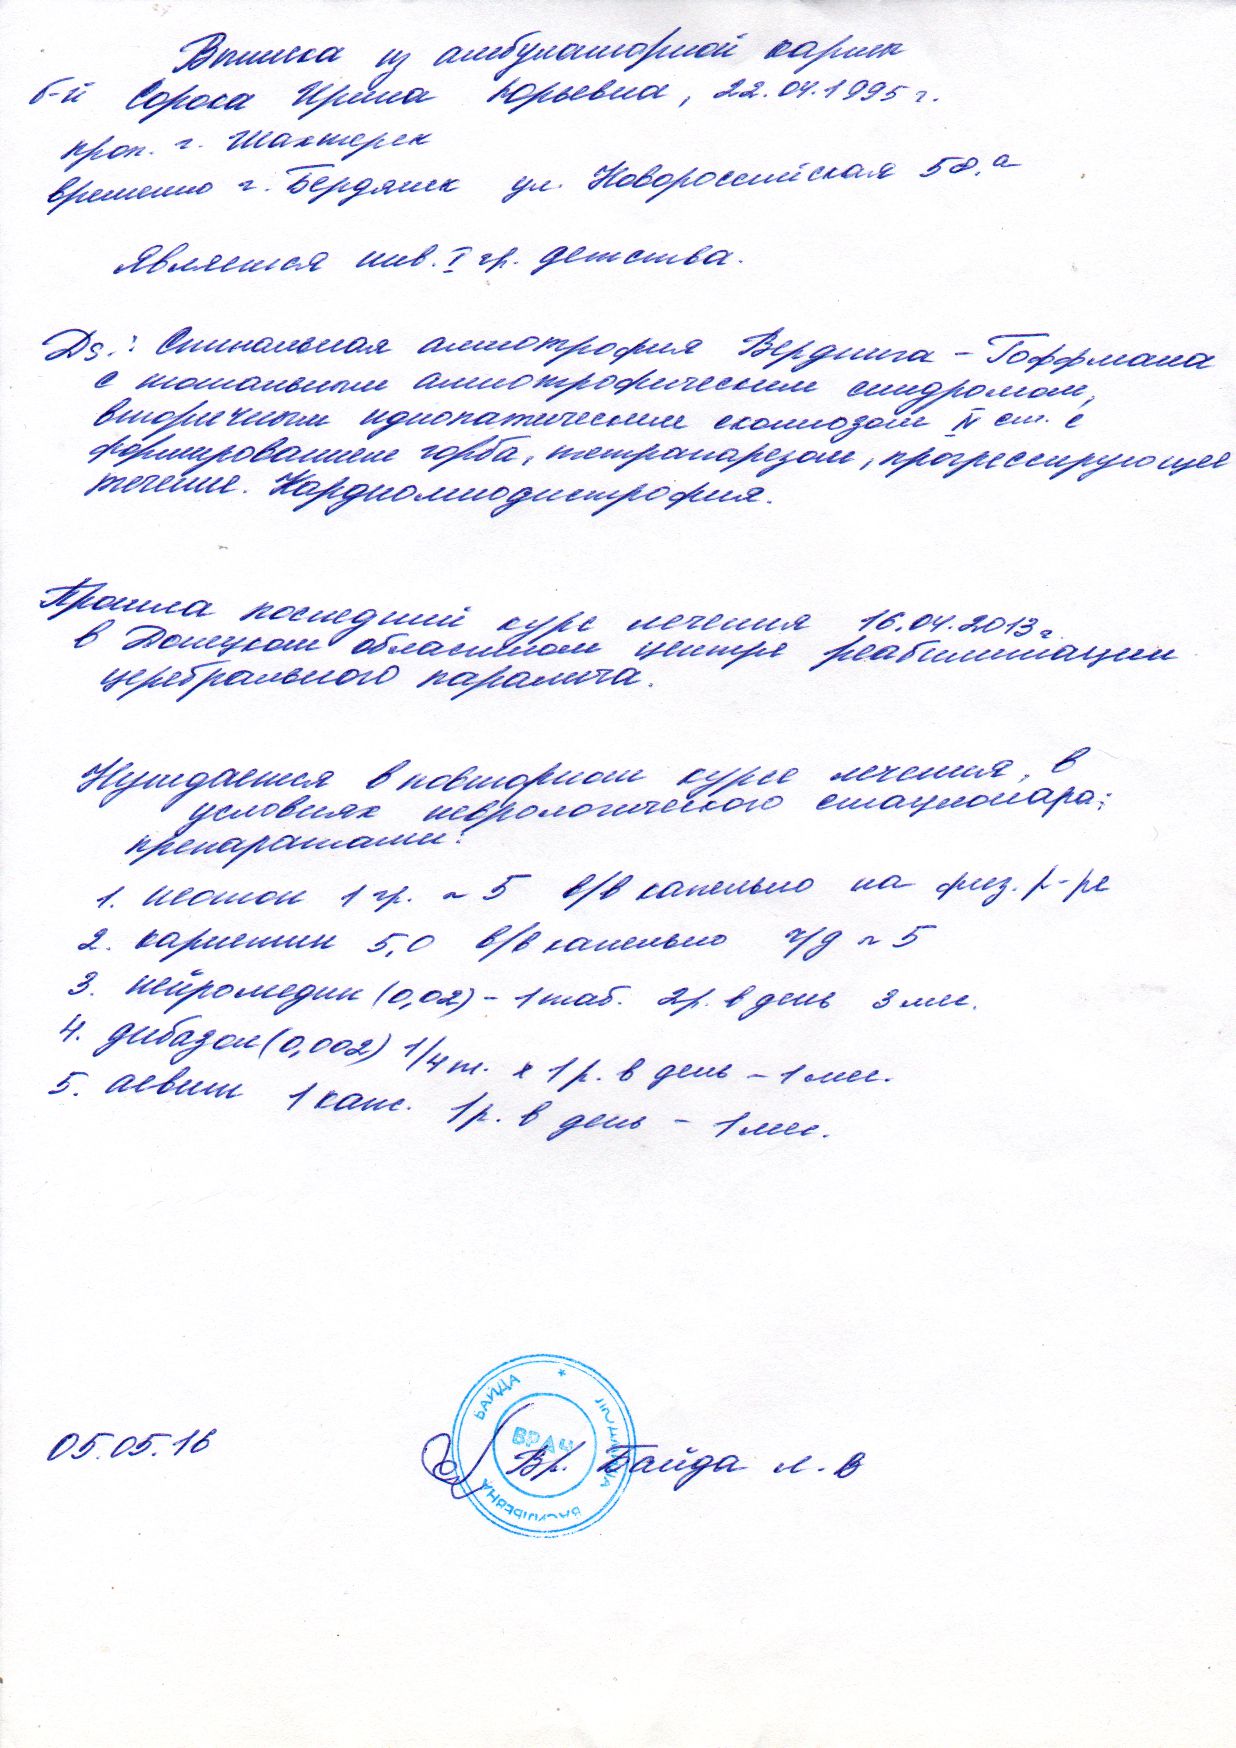 Выписка из амбулаторной карты
б-й Сорока Ирина Юрьевна, 22.04.1995 г.
проп. г. Шахтерск
временно г. Бердянск ул. Новороссийская 58.а
Является инв. I гр. детства.
Ds.: Спинальная амиотрофия Вердинга - Гоффмана
с тотальным амиотрофическим синдромом,
вторичным идиопатическим сколиозом IV ст. с
формированием горба, тетрапарезом, прогрессирующее
течение. Кардиомиодистрофия.
Прошла последний курс лечения 16.04.2013 г.
в Донецком областном центре реабилитации
церебрального паралича.
Нуждается в повторном курсе лечения, в
условиях неврологического стационара;
препаратами:
1. неотон 1 гр. ~ 5 в/в капельно на физ. р-ре
2. карнетин 5,0 в/в капельно ч/д ~ 5
3. нейромедин (0,02) - 1 таб. 2 р. в день 3 мес.
4. дибазол (0,002) 1/4 т. x 1 р. в день - 1 мес.
5. аевит 1 капс. 1 р. в день - 1 мес.
БАЙДА * ВАСИЛІВНА
ВРАЧ
05.05.16 Вр. Байда Л. В